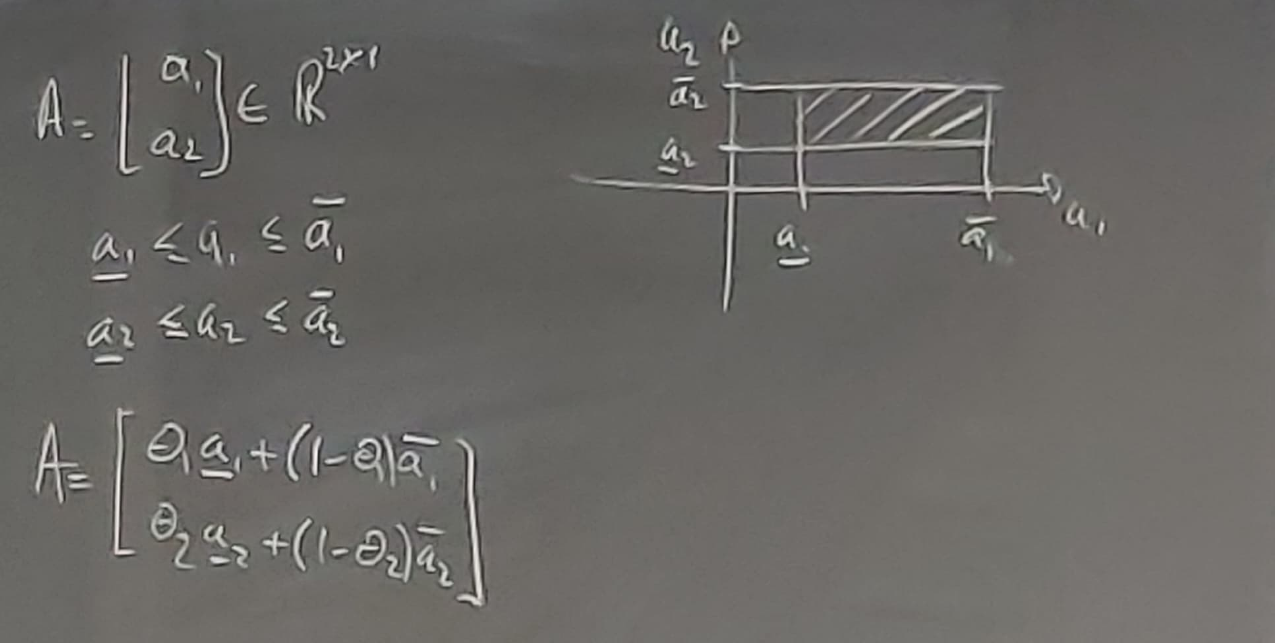 A = [a₁ a₂] ∈ ℝ²ˣ¹
a̲₁ ≤ a₁ ≤ a̅₁
a̲₂ ≤ a₂ ≤ a̅₂
A = [θ₁a̲₁ + (1-θ₁)a̅₁
θ₂a̲₂ + (1-θ₂)a̅₂]
a₂
a̅₂
a̲₂
a̲₁
a̅₁
a₁